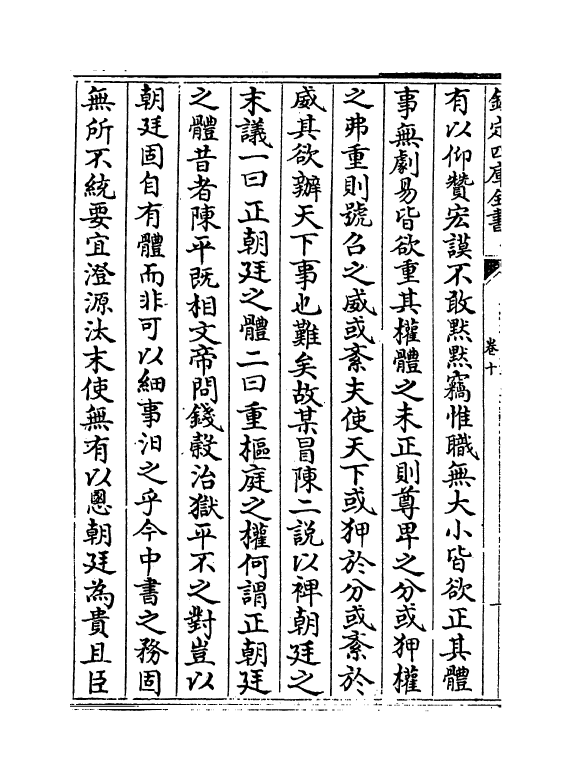 欽定四庫全書
卷十
有以仰贊宏謨不敢黙黙竊惟職無大小皆欲正其體
事無劇易皆欲重其權體之未正則尊卑之分或狎權
之弗重則號召之威或紊夫使天下或狎於分或紊於
威其欲辦天下事也難矣故某冒陳二説以裨朝廷之
末議一曰正朝廷之體二曰重樞庭之權何謂正朝廷
之體昔者陳平既相文帝問錢穀治獄平不之對豈以
朝廷固自有體而非可以細事汩之乎今中書之務固
無所不統要宜澄源汰末使無有以慁朝廷為貴且臣